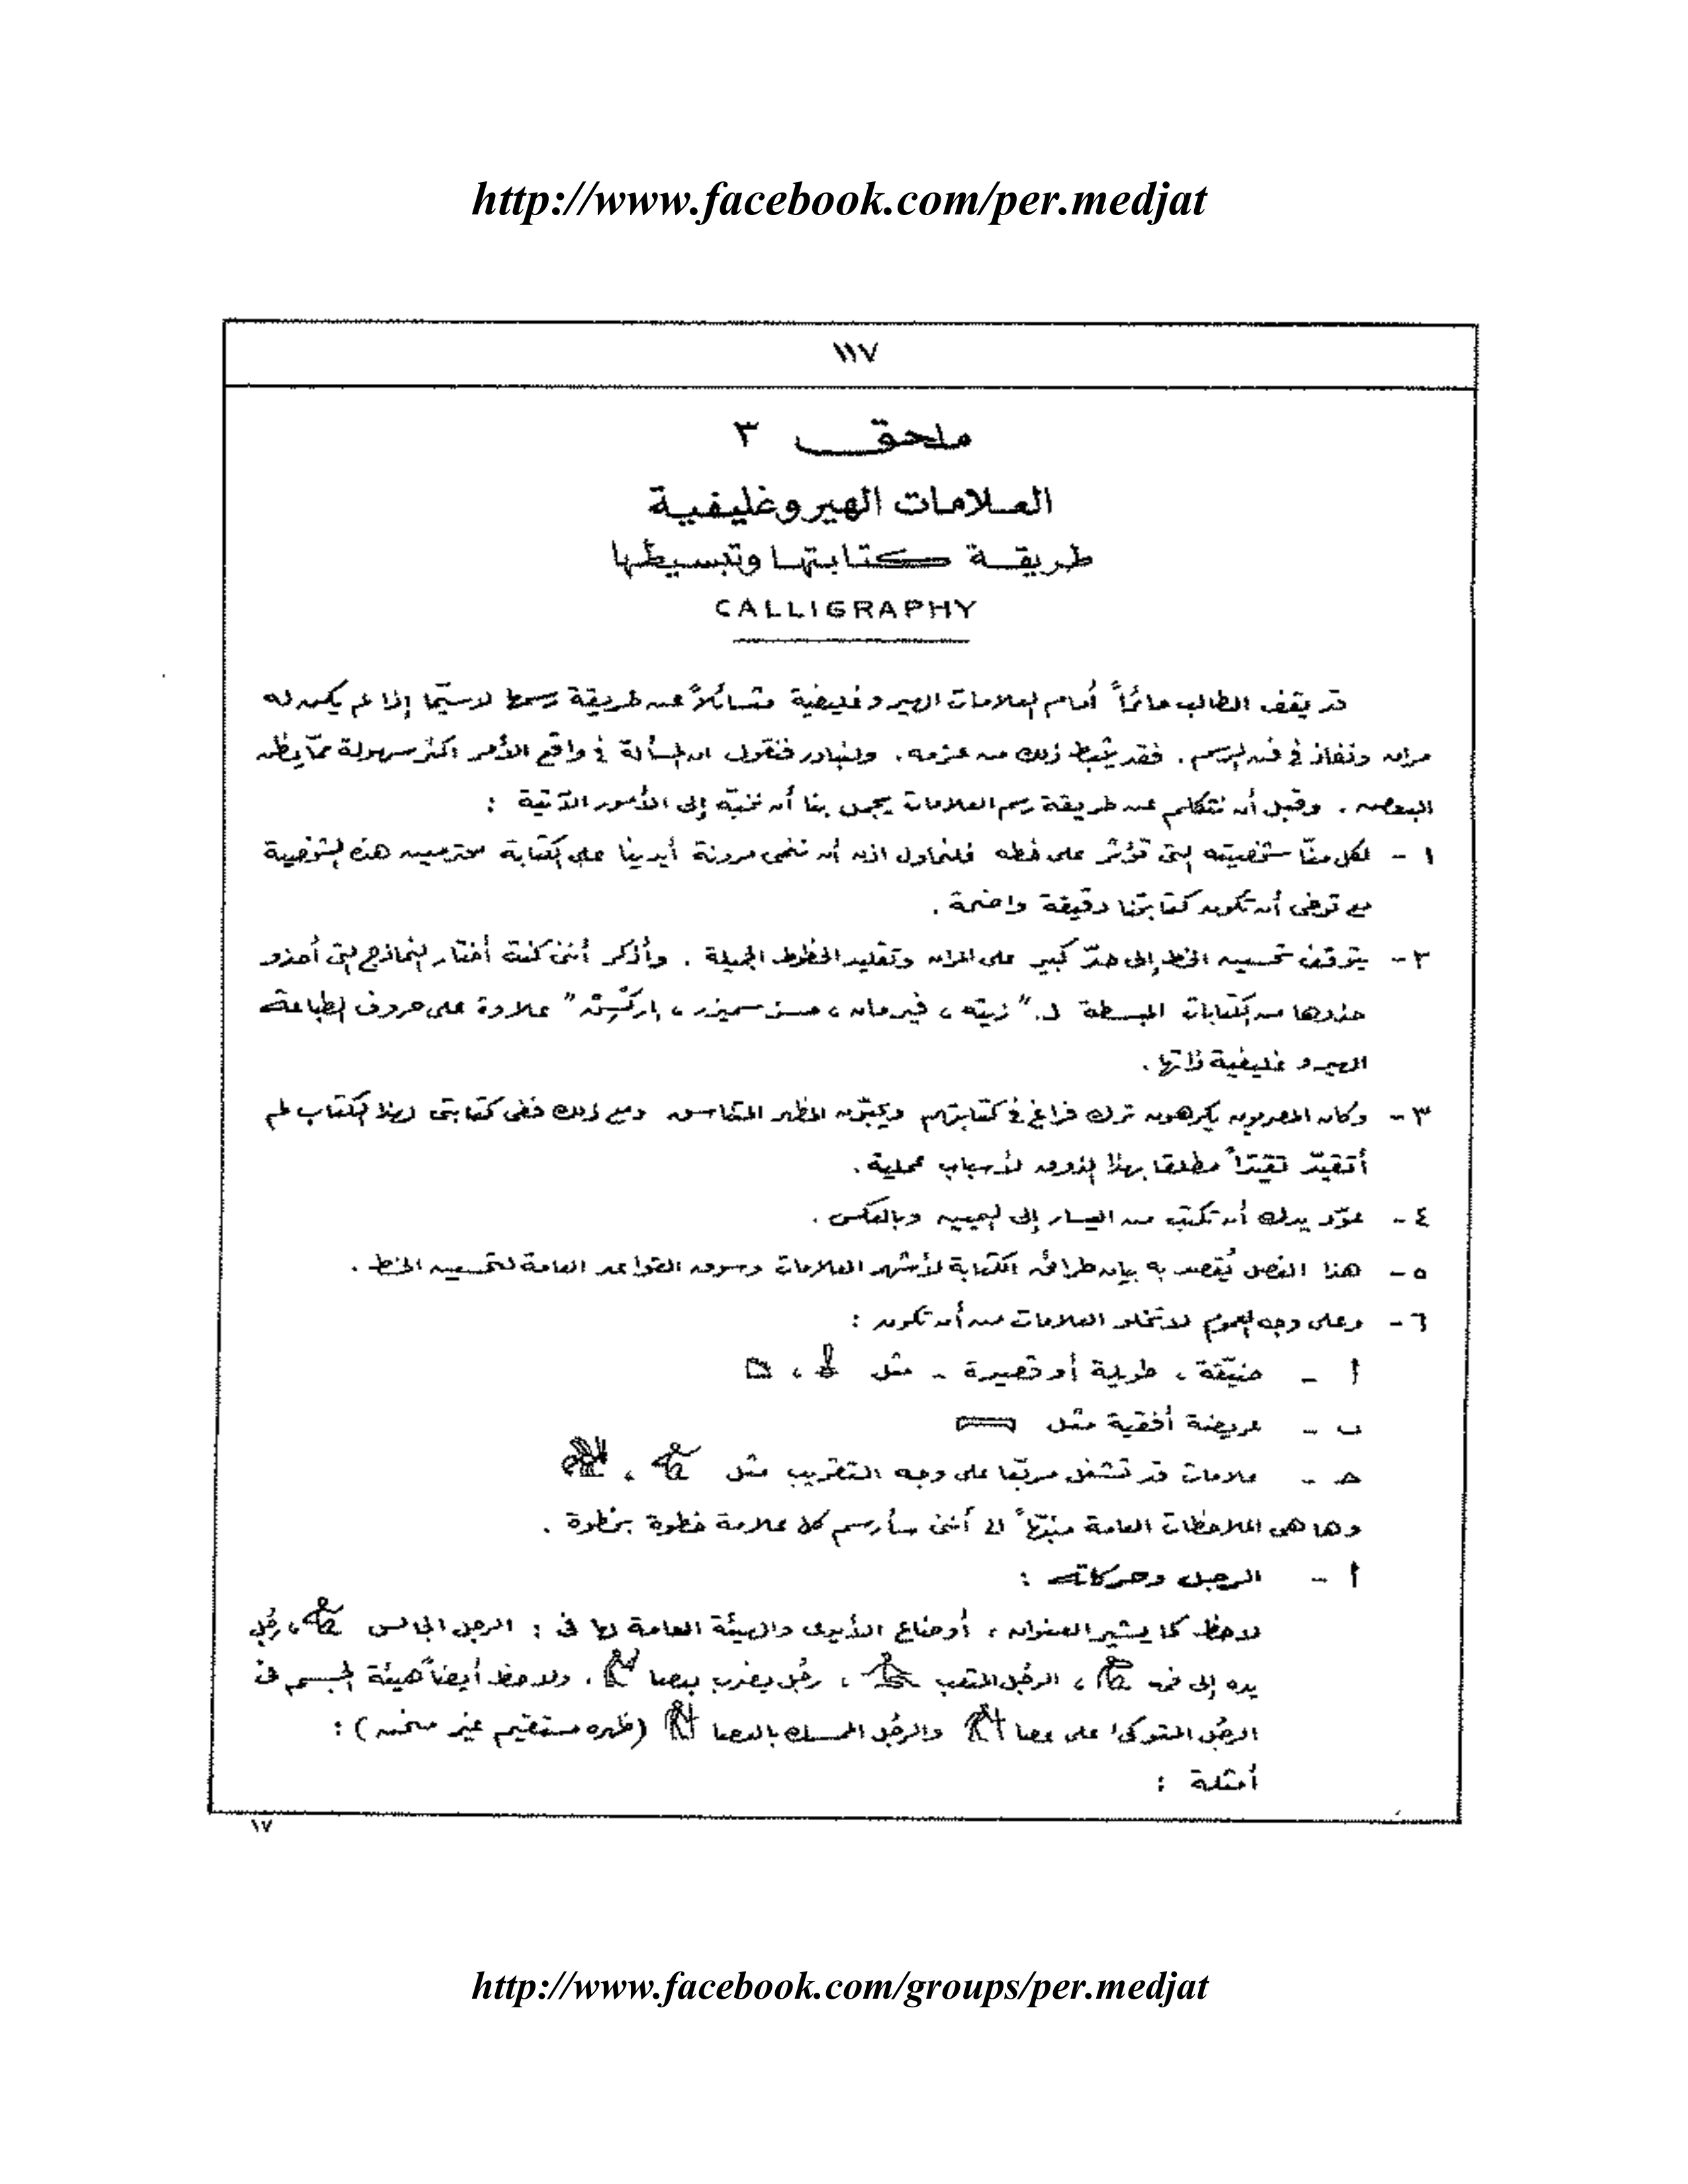 http://www.facebook.com/per.medjat
١١٧
ملحق ٣
العلامات الهيروغليفية
طريقة كتابتها وتبسيطها
CALLIGRAPHY
قد يقف الطالب حائراً أمام العلامات الهيروغليفية متسائلاً عن طريقة رسمها لاسيّما إذا لم يكن له
مران ونفاذ في فن الرسم. فقد يثبط ذلك من عزمه. ولنبادر فنقول ان المسألة في واقع الأمر اكثر سهولة ممّا يظن
البعض. وقبل أن نتكلم عن طريقة رسم العلامات يجمل بنا أن ننبّه إلى الأمور الآتية :
١ - لكل منّا شخصيته التى تؤثر على خطه فلنحاول اذن أن ننمى مرونة أيدينا على الكتابة محترمين هذه الشخصية
مع توخى أن تكون كتابتنا دقيقة واضحة.
٢ - يتوقف تحسين الخط إلى حدّ كبير على المران وتقليد الخطوط الجميلة. وأذكر أننى كنت أختار النماذج التى أحذو
حذوها من الكتابات المبسطة لـ "زيته، فيرمان، علاوة على حروف الطباعة
الهيروغليفية ذاتها.
٣ - وكان المصريون يكرهون ترك فراغ في كتابتهم ويحبّون المظهر المتماسق ومع ذلك ففى كتابتى لهذا الكتاب لم
أتقيّد تقيّداً مطلقا بهذا الذوق لأسباب عملية.
٤ - عوّد يدك أن تكتب من اليسار إلى اليمين وبالعكس.
٥ - هذا الفصل يُقصد به بيان طرائق الكتابة لأشهر العلامات وسوق القواعد العامة لتحسين الخط.
٦ - وعلى وجه العموم لا تخلو العلامات من أن تكون :
أ - ضيّقة، طويلة أو قصيرة - مثل ،
ب - عريضة أفقية مثل
حـ - علامات قد تشغل مربّعا على وجه التقريب مثل ،
وها هى الملاحظات العامة منبّهاً الى أننى سأرسم كل علامة خطوة بخطوة.
أ - الرجل وحركاته :
لاحظ كما يشير العنوان، أوضاع الأيدى والهيئة العامة لها فى : الرجل الجالس ، رجُل
يده إلى فمه ، الرجُل المتعب ، رجُل يضرب بعصا . ولاحظ أيضاً هيئة الجسم فى
الرجُل المتوكئ على عصا والرجُل الممسك بالعصا (ظهره مستقيم غير منحن) :
أمثلة :
١٧
http://www.facebook.com/groups/per.medjat